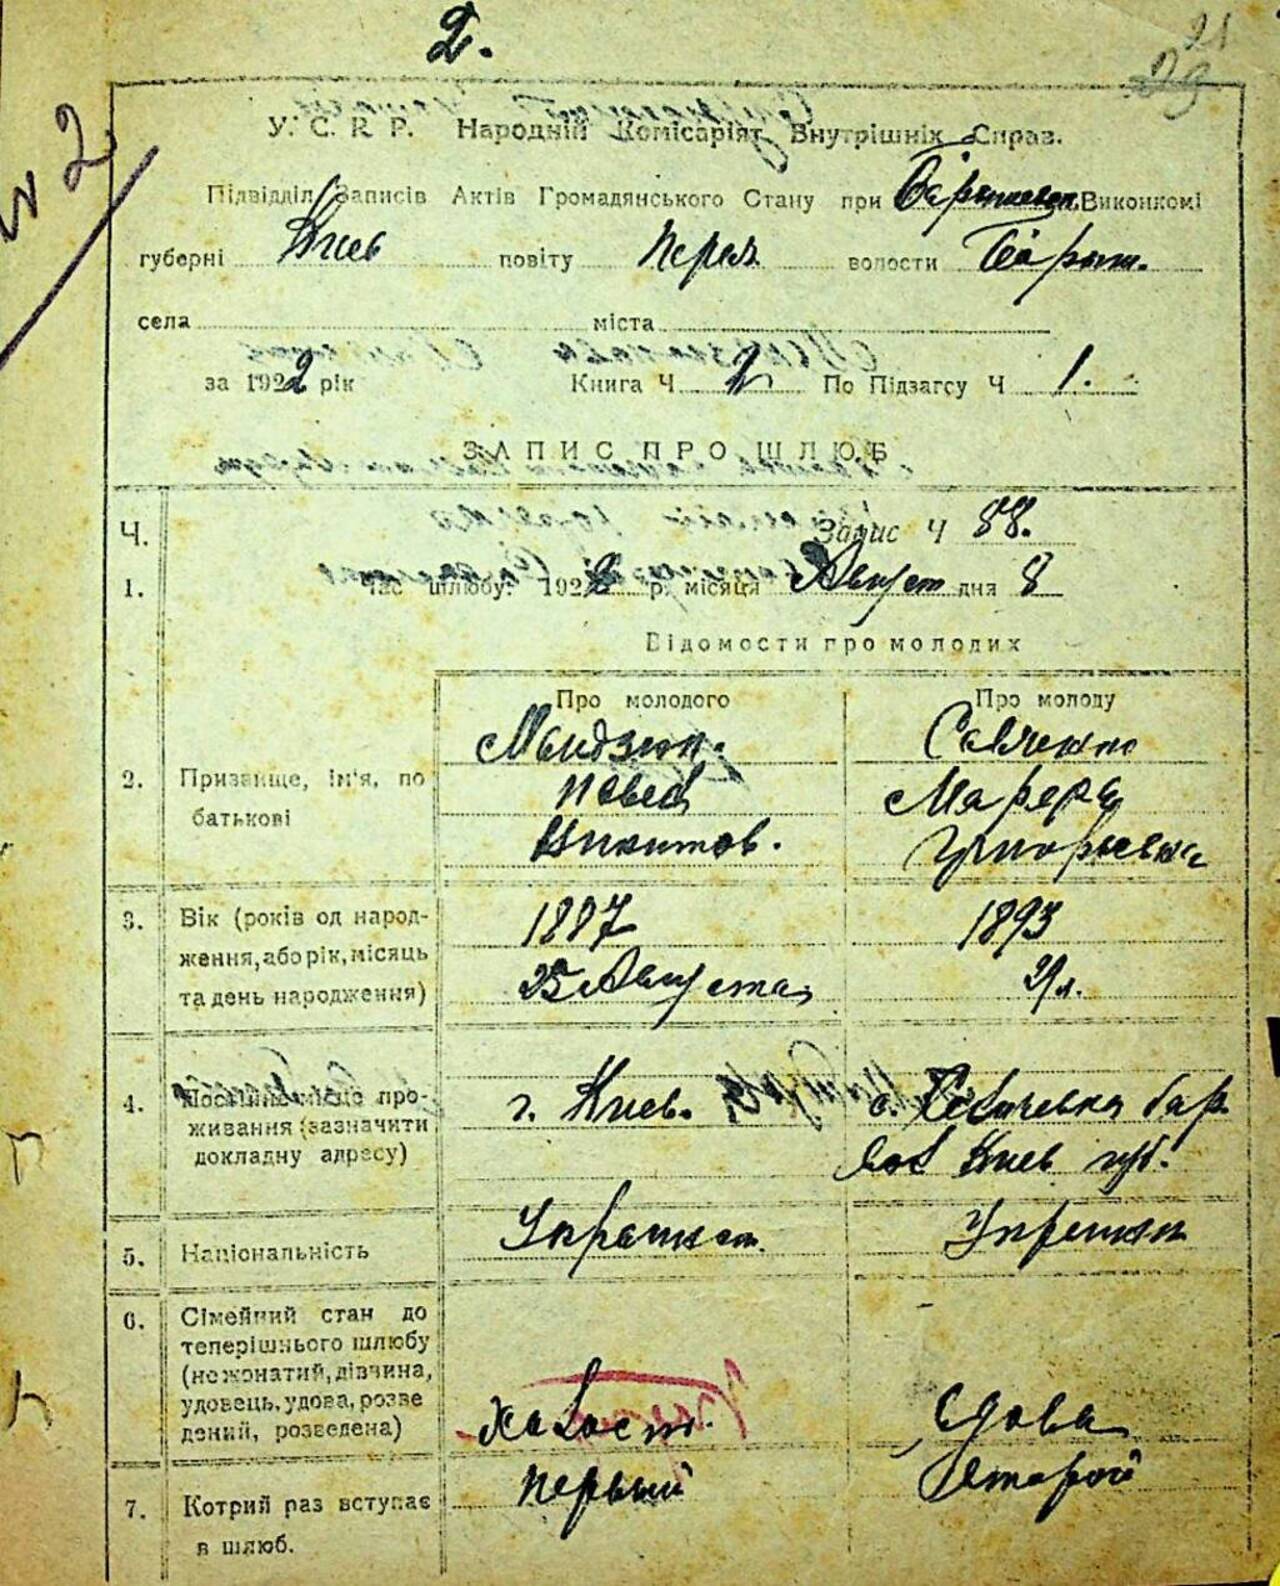 2.
21
23
N 2
У. С. Р. Р. Народній Комісаріят Внутрішніх Справ.
Підвідділ Записів Актів Громадянського Стану при Виконкомі
губерні Киев повіту Переял волости Барыш.
села міста
за 1922 рік Книга Ч 2 По Підзагсу Ч 1.
ЗАПИС ПРО ШЛЮБ
Ч. Запис Ч 88.
1. Час шлюбу: 1922 р. місяця Август дня 8
Відомости про молодих
Про молодого Про молоду
Савченко
2. Призвище, ім'я, по батькові Павел
Никитов. Григорьевна
3. Вік (років од народ- 1887 1893
ження, або рік, місяць
та день народження) 25 Августа 29 л.
4. Постійне місце про- г. Киев. с. бар
живання (зазначити
докладну адресу) вол Киев губ.
5. Національність Украинец Украинка
6. Сімейний стан до
теперішнього шлюбу
(нежонатий, дівчина,
удовець, удова, розве
дений, розведена) Холост. Вдова
7. Котрий раз вступає первый второй
в шлюб.